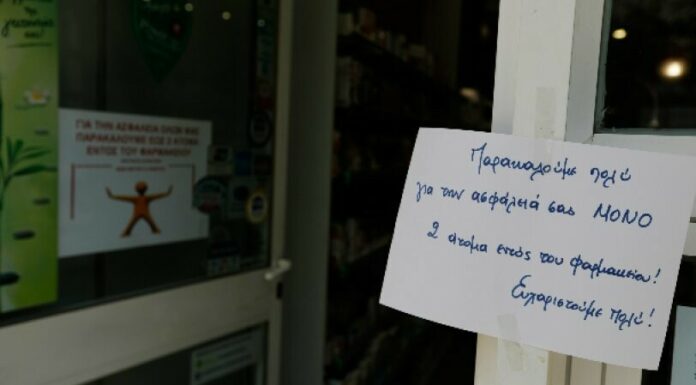 της
γειτονιάς
σας!
ΓΙΑ ΤΗΝ ΑΣΦΑΛΕΙΑ ΟΛΩΝ ΜΑΣ
ΠΑΡΑΚΑΛΟΥΜΕ ΕΩΣ 2 ΑΤΟΜΑ
ΕΝΤΟΣ ΤΟΥ ΦΑΡΜΑΚΕΙΟΥ!
Παρακαλούμε πολύ
για την ασφάλειά σας ΜΟΝΟ
2 άτομα εντός του φαρμακείου!
Ευχαριστούμε πολύ!